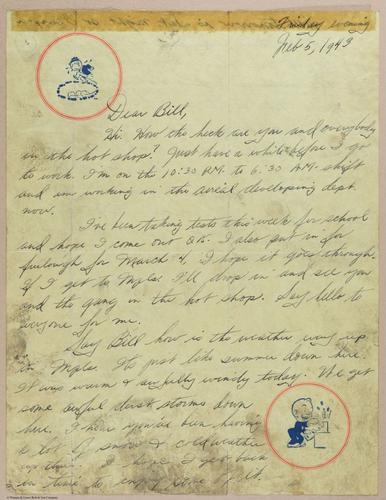 Friday evening
Feb 5, 1943
Dear Bill,
Hi. How the heck are you and everybody
in the hot shop? Just have a while before I go
to work. I'm on the 10:30 P.M. to 6:30 A.M. shift
and am working in the aerial developing dept.
now.
I've been taking tests this week for school
and hope I come out O.K. I also put in for
furlough for March 4, I hope it goes through.
If I get to Mpls. I'll drop in and see you
and the gang in the hot shop. Say hello to
everyone for me.
Say Bill how is the weather way up
in Mpls. Its just like summer down here.
It was warm & awfully windy today. We get
some awful dust storms down
here. I hear you've been having
a lot of snow & cold weather
up there. I hope I get back
in time to enjoy some of it.